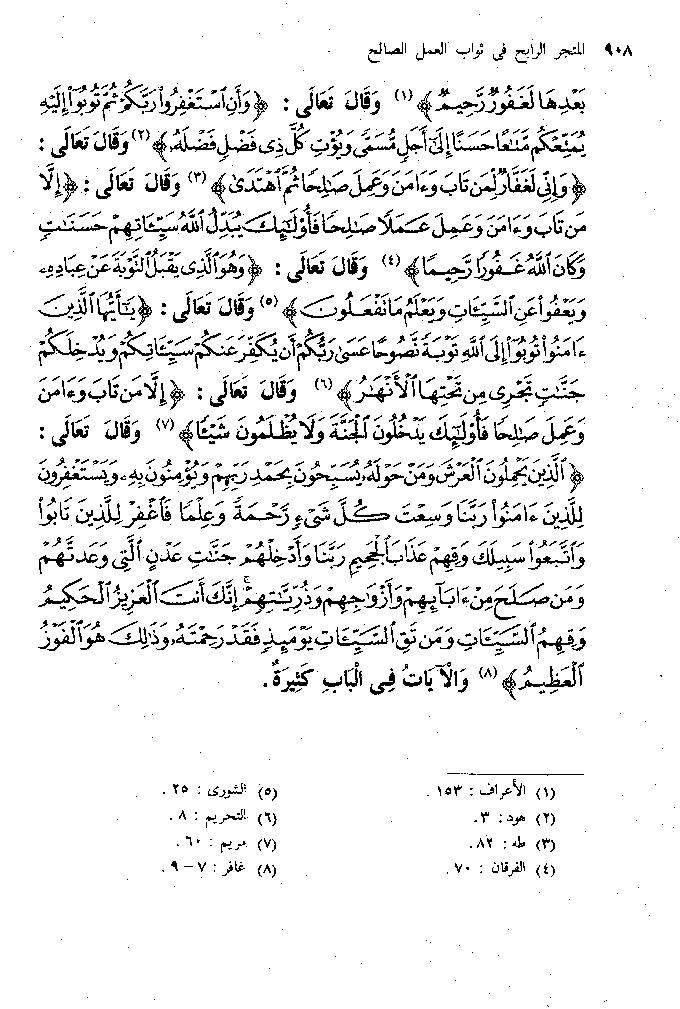 ٩٠٨ المتجر الرابح في ثواب العمل الصالح
بَعْدِهَا لَغَفُورٌ رَّحِيمٌ﴾ (١) وَقَالَ تَعَالَى : ﴿وَأَنِ ٱسْتَغْفِرُوا۟ رَبَّكُمْ ثُمَّ تُوبُوٓا۟ إِلَيْهِ
يُمَتِّعْكُم مَّتَٰعًا حَسَنًا إِلَىٰٓ أَجَلٍ مُّسَمًّى وَيُؤْتِ كُلَّ ذِى فَضْلٍ فَضْلَهُۥ﴾ (٢) وَقَالَ تَعَالَى :
﴿وَإِنِّى لَغَفَّارٌ لِّمَن تَابَ وَءَامَنَ وَعَمِلَ صَٰلِحًا ثُمَّ ٱهْتَدَىٰ﴾ (٣) وَقَالَ تَعَالَى : ﴿إِلَّا
مَن تَابَ وَءَامَنَ وَعَمِلَ عَمَلًا صَٰلِحًا فَأُو۟لَٰٓئِكَ يُبَدِّلُ ٱللَّهُ سَيِّـَٔاتِهِمْ حَسَنَٰتٍ
وَكَانَ ٱللَّهُ غَفُورًا رَّحِيمًا﴾ (٤) وَقَالَ تَعَالَى : ﴿وَهُوَ ٱلَّذِى يَقْبَلُ ٱلتَّوْبَةَ عَنْ عِبَادِهِۦ
وَيَعْفُوا۟ عَنِ ٱلسَّيِّـَٔاتِ وَيَعْلَمُ مَا تَفْعَلُونَ﴾ (٥) وَقَالَ تَعَالَى : ﴿يَٰٓأَيُّهَا ٱلَّذِينَ
ءَامَنُوا۟ تُوبُوٓا۟ إِلَى ٱللَّهِ تَوْبَةً نَّصُوحًا عَسَىٰ رَبُّكُمْ أَن يُكَفِّرَ عَنكُمْ سَيِّـَٔاتِكُمْ وَيُدْخِلَكُمْ
جَنَّٰتٍ تَجْرِى مِن تَحْتِهَا ٱلْأَنْهَٰرُ﴾ (٦) وَقَالَ تَعَالَى : ﴿إِلَّا مَن تَابَ وَءَامَنَ
وَعَمِلَ صَٰلِحًا فَأُو۟لَٰٓئِكَ يَدْخُلُونَ ٱلْجَنَّةَ وَلَا يُظْلَمُونَ شَيْـًٔا﴾ (٧) وَقَالَ تَعَالَى :
﴿ٱلَّذِينَ يَحْمِلُونَ ٱلْعَرْشَ وَمَنْ حَوْلَهُۥ يُسَبِّحُونَ بِحَمْدِ رَبِّهِمْ وَيُؤْمِنُونَ بِهِۦ وَيَسْتَغْفِرُونَ
لِلَّذِينَ ءَامَنُوا۟ رَبَّنَا وَسِعْتَ كُلَّ شَىْءٍ رَّحْمَةً وَعِلْمًا فَٱغْفِرْ لِلَّذِينَ تَابُوا۟
وَٱتَّبَعُوا۟ سَبِيلَكَ وَقِهِمْ عَذَابَ ٱلْجَحِيمِ رَبَّنَا وَأَدْخِلْهُمْ جَنَّٰتِ عَدْنٍ ٱلَّتِى وَعَدتَّهُمْ
وَمَن صَلَحَ مِنْ ءَابَآئِهِمْ وَأَزْوَٰجِهِمْ وَذُرِّيَّٰتِهِمْ ۚ إِنَّكَ أَنتَ ٱلْعَزِيزُ ٱلْحَكِيمُ
وَقِهِمُ ٱلسَّيِّـَٔاتِ وَمَن تَقِ ٱلسَّيِّـَٔاتِ يَوْمَئِذٍ فَقَدْ رَحِمْتَهُۥ وَذَٰلِكَ هُوَ ٱلْفَوْزُ
ٱلْعَظِيمُ﴾ (٨) وَالْآيَاتُ فِي الْبَابِ كَثِيرَةٌ .
(١) الأعراف : ١٥٣ .
(٢) هود : ٣ .
(٣) طه : ٨٢ .
(٤) الفرقان : ٧٠ .
(٥) الشورى : ٢٥ .
(٦) التحريم : ٨ .
(٧) مريم : ٦٠ .
(٨) غافر : ٧ - ٩ .